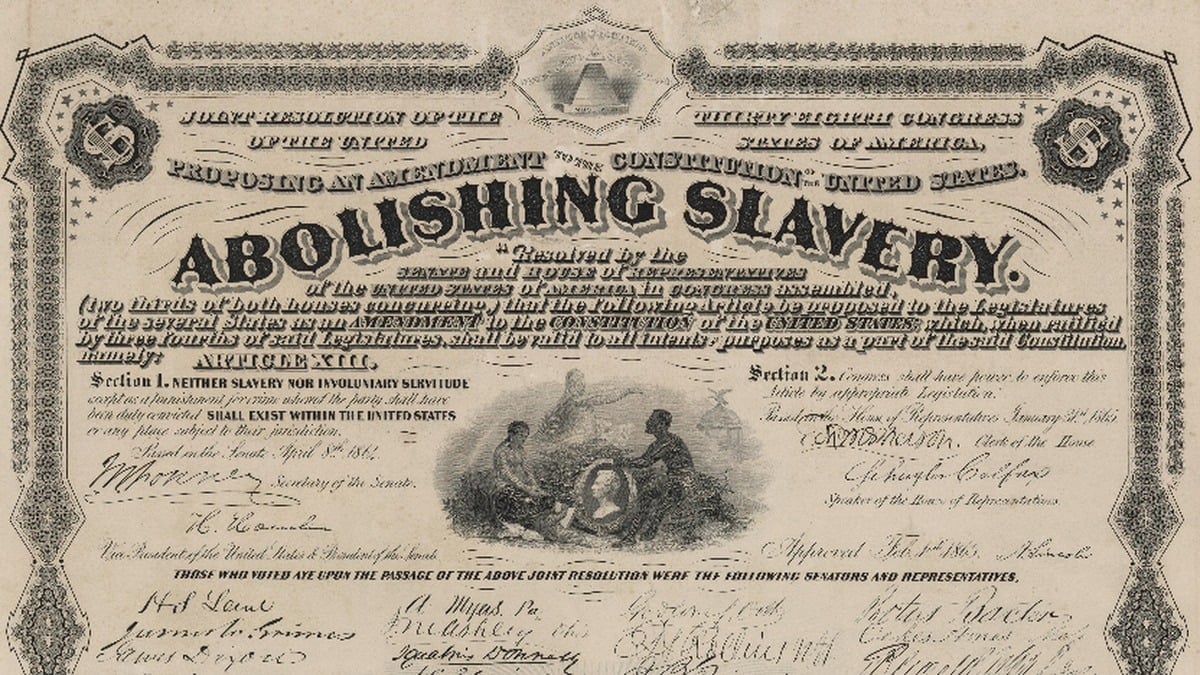 JOINT RESOLUTION OF THE THIRTY EIGHTH CONGRESS
OF THE UNITED STATES OF AMERICA,
PROPOSING AN AMENDMENT TO THE CONSTITUTION OF THE UNITED STATES.
ABOLISHING SLAVERY.
"Resolved by the
SENATE and HOUSE of REPRESENTATIVES
of the UNITED STATES of AMERICA in CONGRESS assembled,
(two thirds of both houses concurring,) that the following Article be proposed to the Legislatures
of the several States as an AMENDMENT to the CONSTITUTION of the UNITED STATES; which, when ratified
by three fourths of said Legislatures, shall be valid to all intents & purposes as a part of the said Constitution,
namely: ARTICLE XIII.
Section 1. NEITHER SLAVERY NOR INVOLUNTARY SERVITUDE
except as a punishment for crime whereof the party shall have
been duly convicted SHALL EXIST WITHIN THE UNITED STATES
or any place subject to their jurisdiction.
Passed in the Senate April 8th 1864.
Secretary of the Senate.
H. Hamlin
Vice President of the United States & President of the Senate
Section 2. Congress shall have power to enforce this
Article by appropriate Legislation."
Passed in the House of Representatives January 31st 1865
Clerk of the House
Schuyler Colfax
Speaker of the House of Representatives.
Approved Feb. 1st 1865. A. Lincoln
THOSE WHO VOTED AYE UPON THE PASSAGE OF THE ABOVE JOINT RESOLUTION WERE THE FOLLOWING SENATORS AND REPRESENTATIVES.
A Myers, Pa
James W Grimes J M Ashley Ohio
James Dixon Ignatius Donnelly